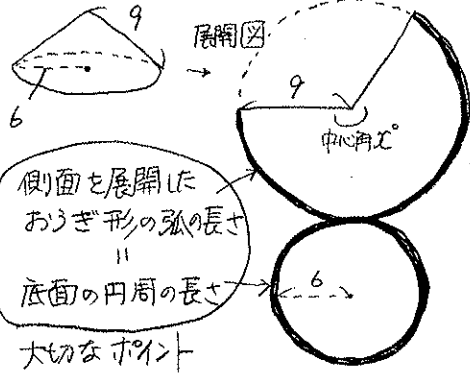 9
6
展開図
9
中心角x°
側面を展開した
おうぎ形の弧の長さ
=
底面の円周の長さ
6
大切なポイント